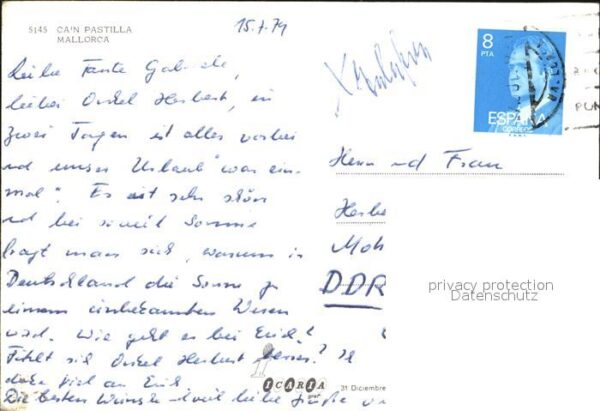 5145 CA'N PASTILLA
MALLORCA
15.7.79
Liebe Tante Gabriele,
lieber Onkel Herbert, in
zwei Tagen ist alles vorbei
und unser Urlaub "war ein-
mal". Es ist sehr schön
und bei soviel Sonne
fragt man sich, warum in
Deutschland die Sonne zu
einem unbekannten Wesen
wird. Wie geht es bei Euch?
Fühlt sich Onkel Herbert besser?
denke viel an Euch
Die besten Wünsche und viele liebe Grüße
8
PTA
ESPAÑA
CORREOS
Herrn und Frau
Herbe
Moh
DDR
privacy protection
Datenschutz
ICARIA
31 Diciembre